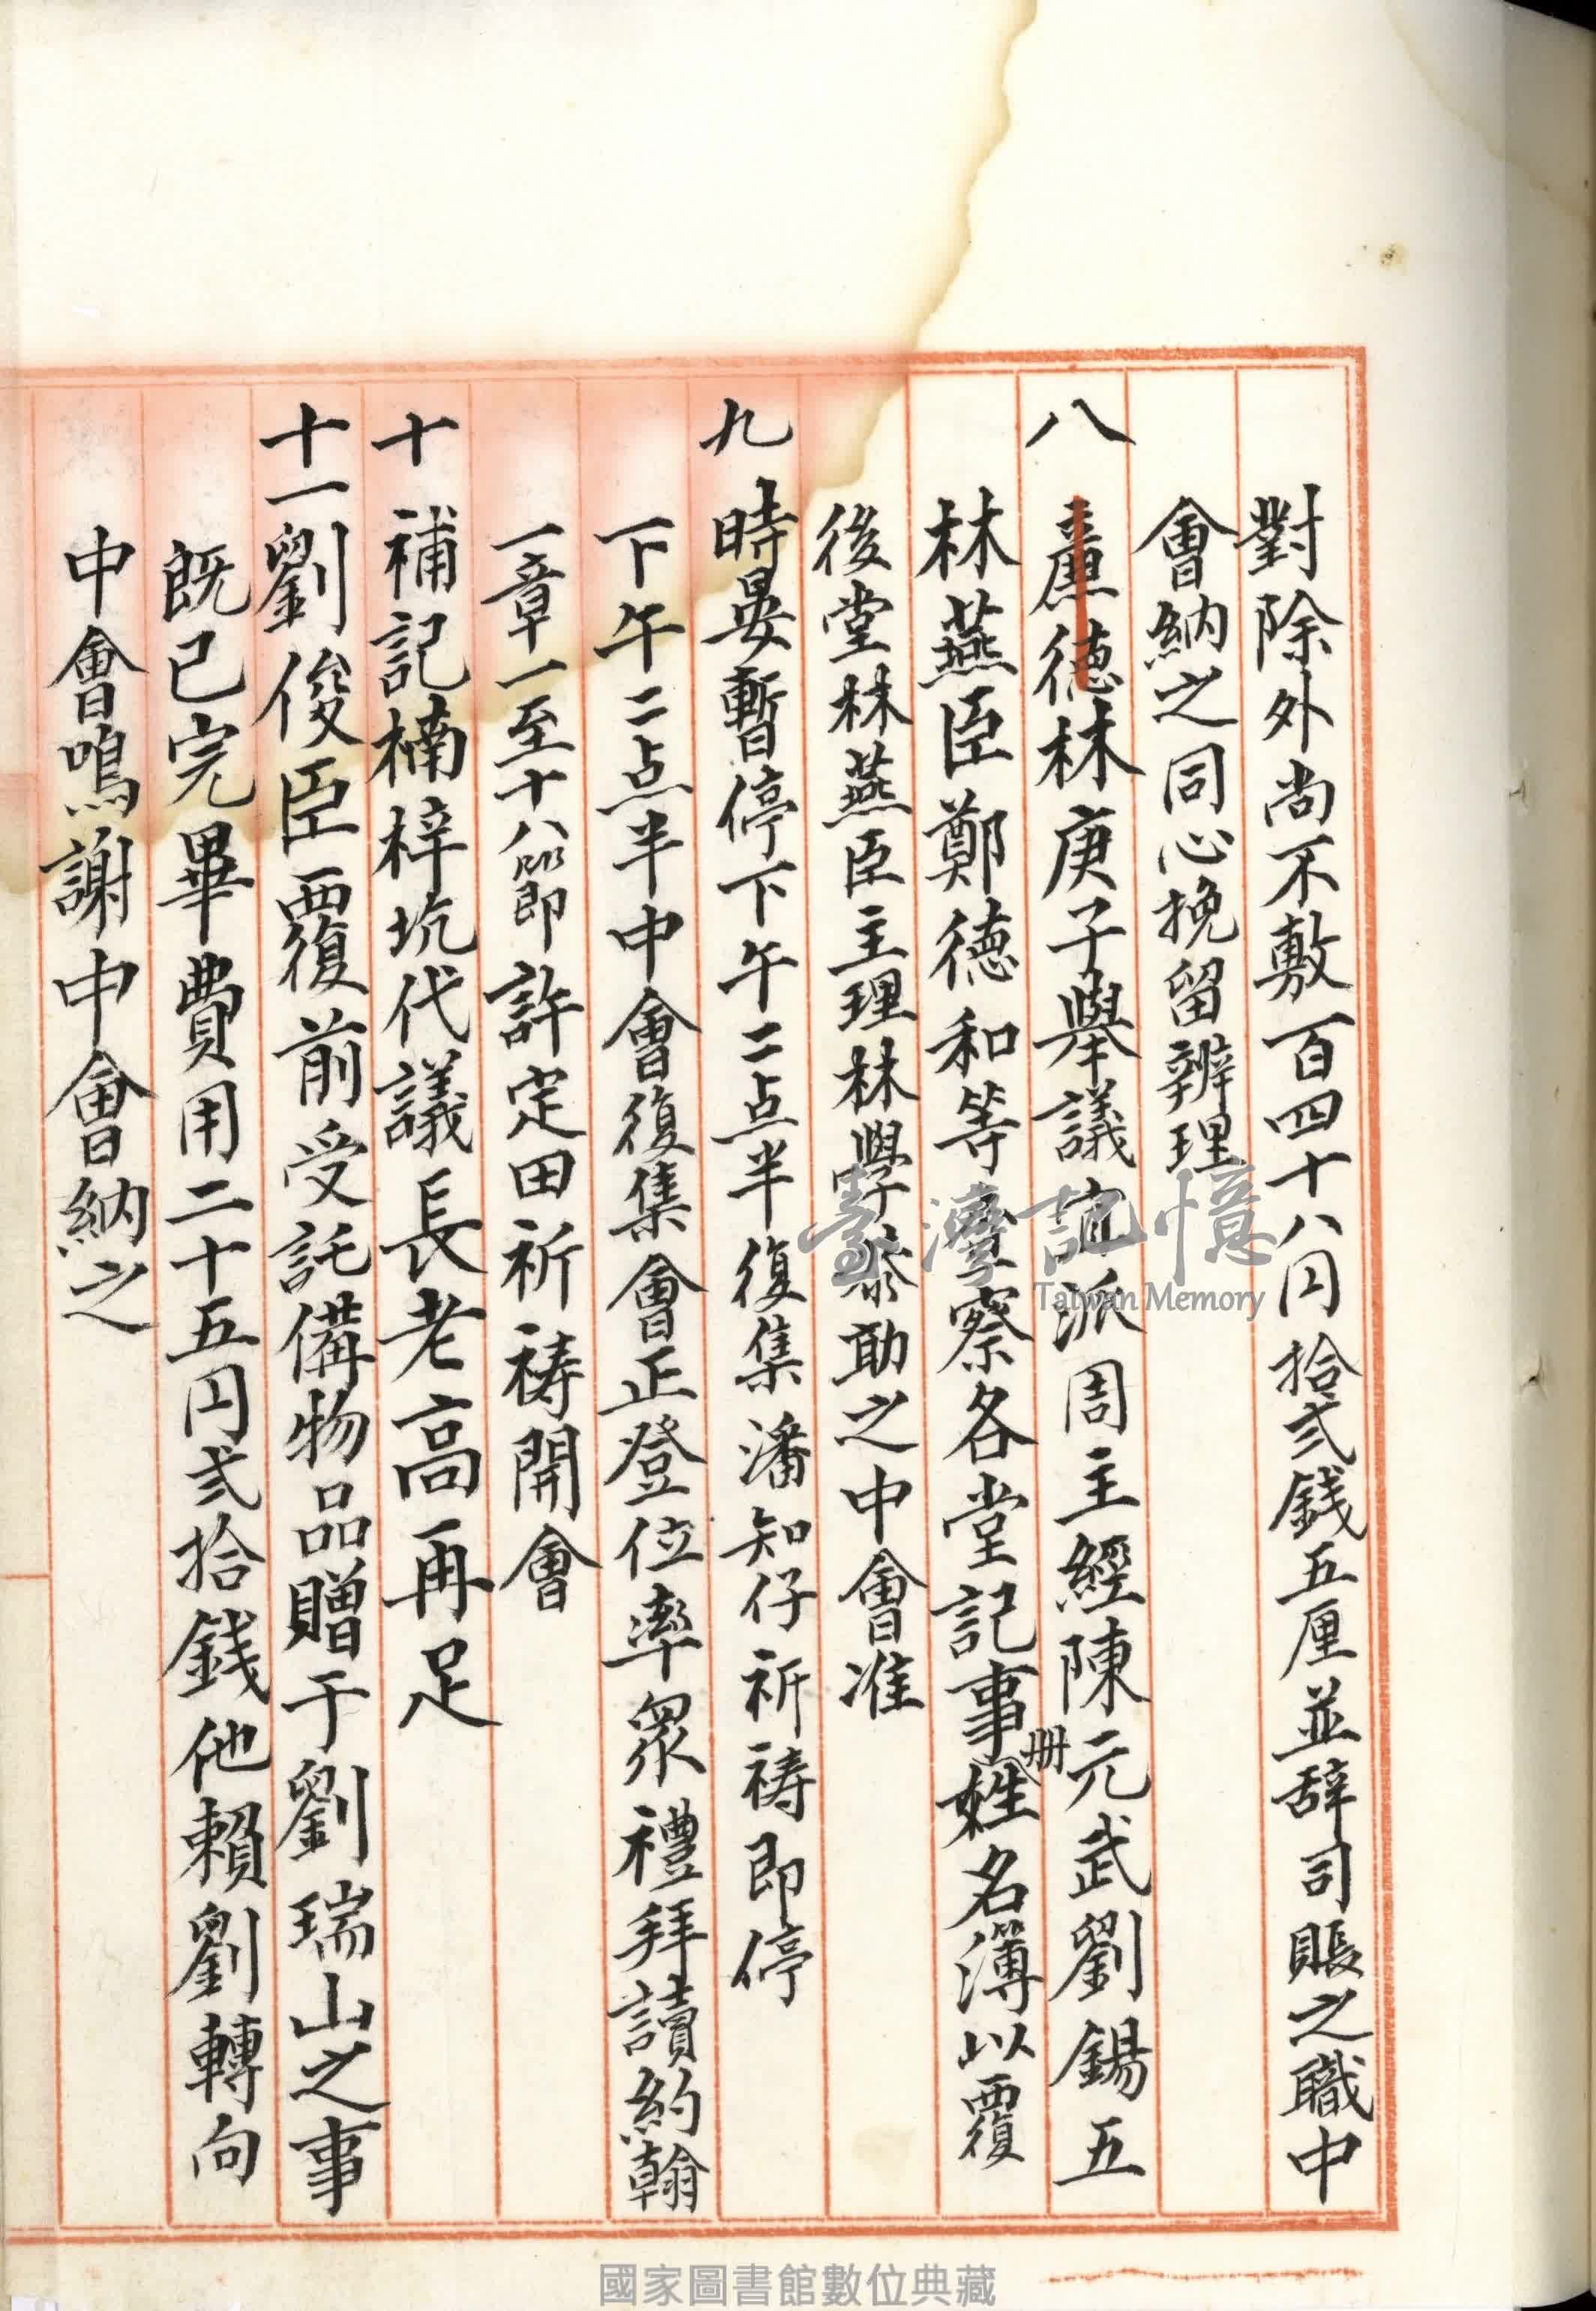 對除外尚不敷百四十八円拾弍錢五厘並辞司賬之職中
會納之同心挽留辨理
八 藨德林庚子舉議宜派周主經陳元武劉錫五
林燕臣鄭德和等 察各堂記事册姓名簿以覆
後堂林燕臣主理林學恭助之中會准
九 時晏暫停下午二点半復集潘知仔祈祷即停
下午二点半中會復集會正登位率眾禮拜讀約翰
一章一至十八節許定田祈祷開會
十 補記楠梓坑代議長老高再足
十一 劉俊臣覆前受託備物品贈于劉瑞山之事
既已完畢費用二十五円弍拾錢他賴劉轉向
中會鳴謝中會納之
臺灣記憶
Taiwan Memory
國家圖書館數位典藏